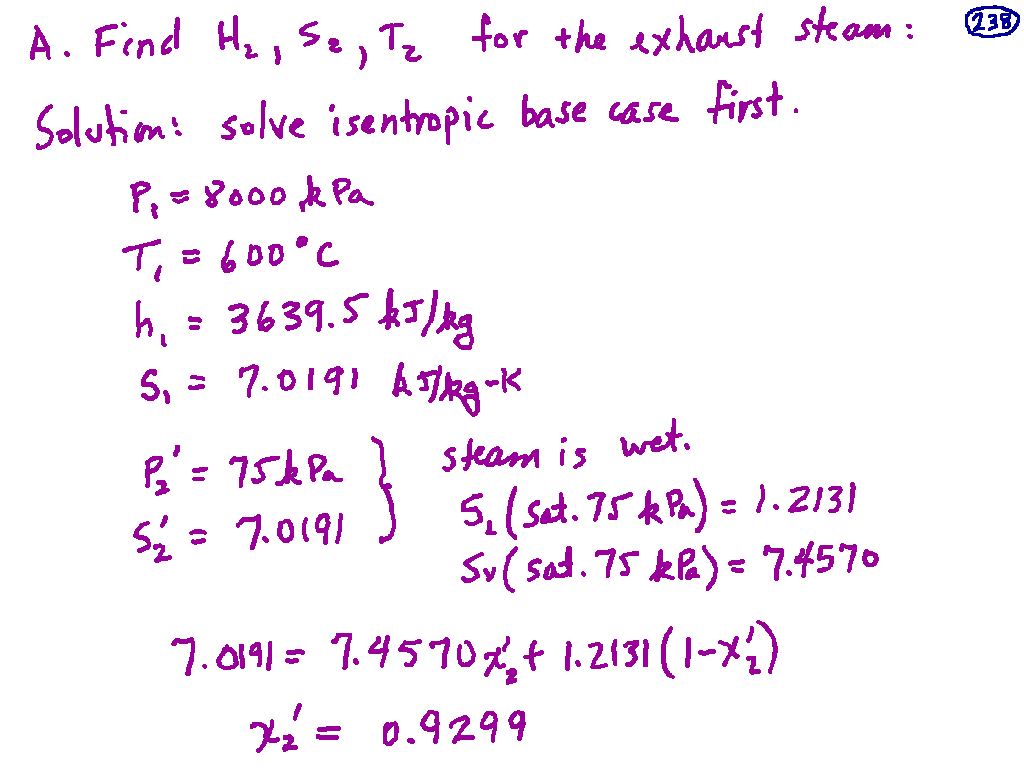 A. Find H₂, S₂, T₂ for the exhaust steam: 238
Solution: solve isentropic base case first.
P₁ = 8000 kPa
T₁ = 600°C
h₁ = 3639.5 kJ/kg
S₁ = 7.0191 kJ/kg-K
P₂' = 75 kPa } steam is wet.
S₂' = 7.0191
S_L (sat. 75 kPa) = 1.2131
Sv (sat. 75 kPa) = 7.4570
7.0191 = 7.4570 x₂' + 1.2131 (1-x₂')
x₂' = 0.9299